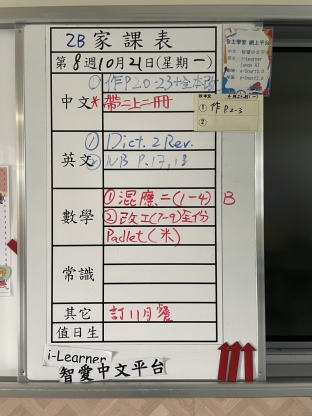 2B 家課表
第8週10月21日(星期一)
中文
①作P20-23+全本改
*帶二上二冊
英文
①Dict. 2 Rev.
②WB P.17,18
數學
①混應二(1-4) B
②改工(7-9)全份
Padlet(米)
常識
其它
訂11月餐
值日生
自主學習 網上平台
①作P2-3
②
i-Learner
智愛中文平台